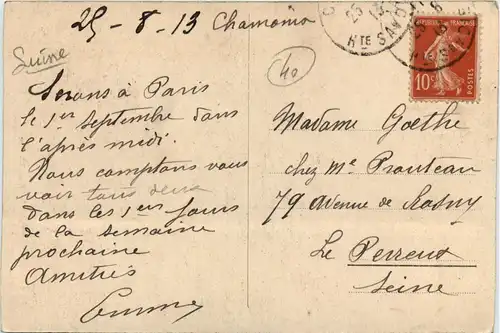 25-8-13 Chamonix
Suine
Serons à Paris
le 1er septembre dans
l'après midi.
Nous comptons vous
voir tous deux
dans les 1ers jours
de la semaine
prochaine
Amitiés
40
25
Hte SAVOIE
REPUBLIQUE FRANÇAISE
10c
POSTES
Madame Goethe
chez Me Prouteau
79 Avenue de Rosny
Le Perreux
Seine